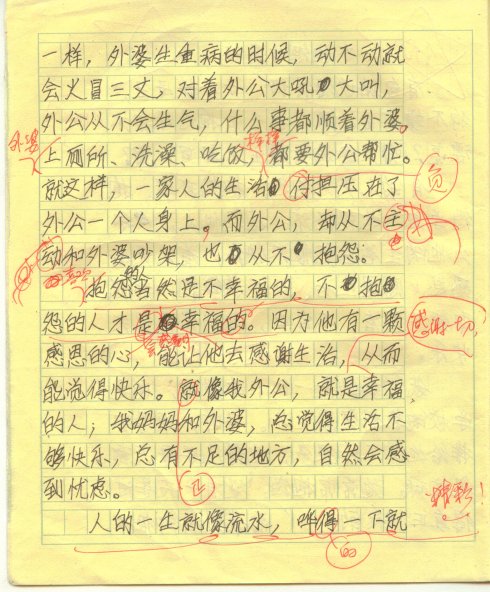 一样，外婆生重病的时候，动不动就
会火冒三丈，对着外公大吼大叫，
外公从不会生气，什么事都顺着外婆。
外婆
上厕所、洗澡、吃饭，都要外公帮忙。
就这样，一家人的生活付担压在了
负
外公一个人身上。而外公，却从不主
动和外婆吵架，也从不抱怨。
抱怨当然是不幸福的，不抱
怨的人才是幸福的。因为他有一颗
感谢一切，
感恩的心，能让他去感谢生活，从而
能觉得快乐。就像我外公，就是幸福
的人；我妈妈和外婆，总觉得生活不
够快乐，总有不足的地方，自然会感
到忧虑。
正
精彩！
人的一生就像流水，哗得一下就
的